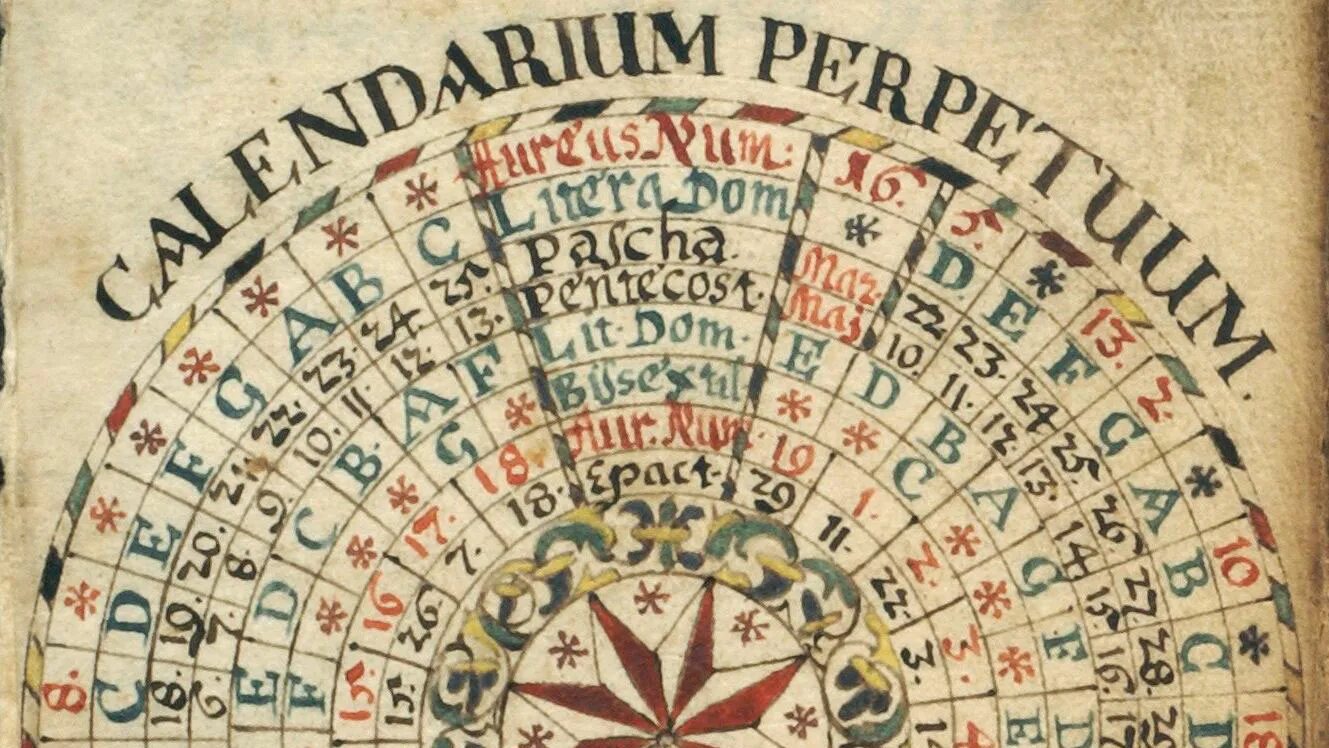 CALENDARIUM PERPETUUM.
8. * * * * * * * Aureus Num: 16. 5. * 13. 2. * 10 *
C D E F G A B C Litera Dom * D E F G A B C
18. 19. 20. 21. 22. 23. 24. 25. Paſcha. Mar. 22 23. 24 25. 26. 27. 28.
6. 7. 8. 9. 10. 11. 12. 13. Pentecost. Maj. 10. 11. 12. 13. 14 15. 16.
E D C B A F Lit. Dom. E D B A G F D
F * * * G * Biſsextil * * C * * * E
15. 16 17. 18. Aur. Num. 19. 1. 2. 3. 4
15. 26. 7. 18. Epact. 29 11. 22. 3.